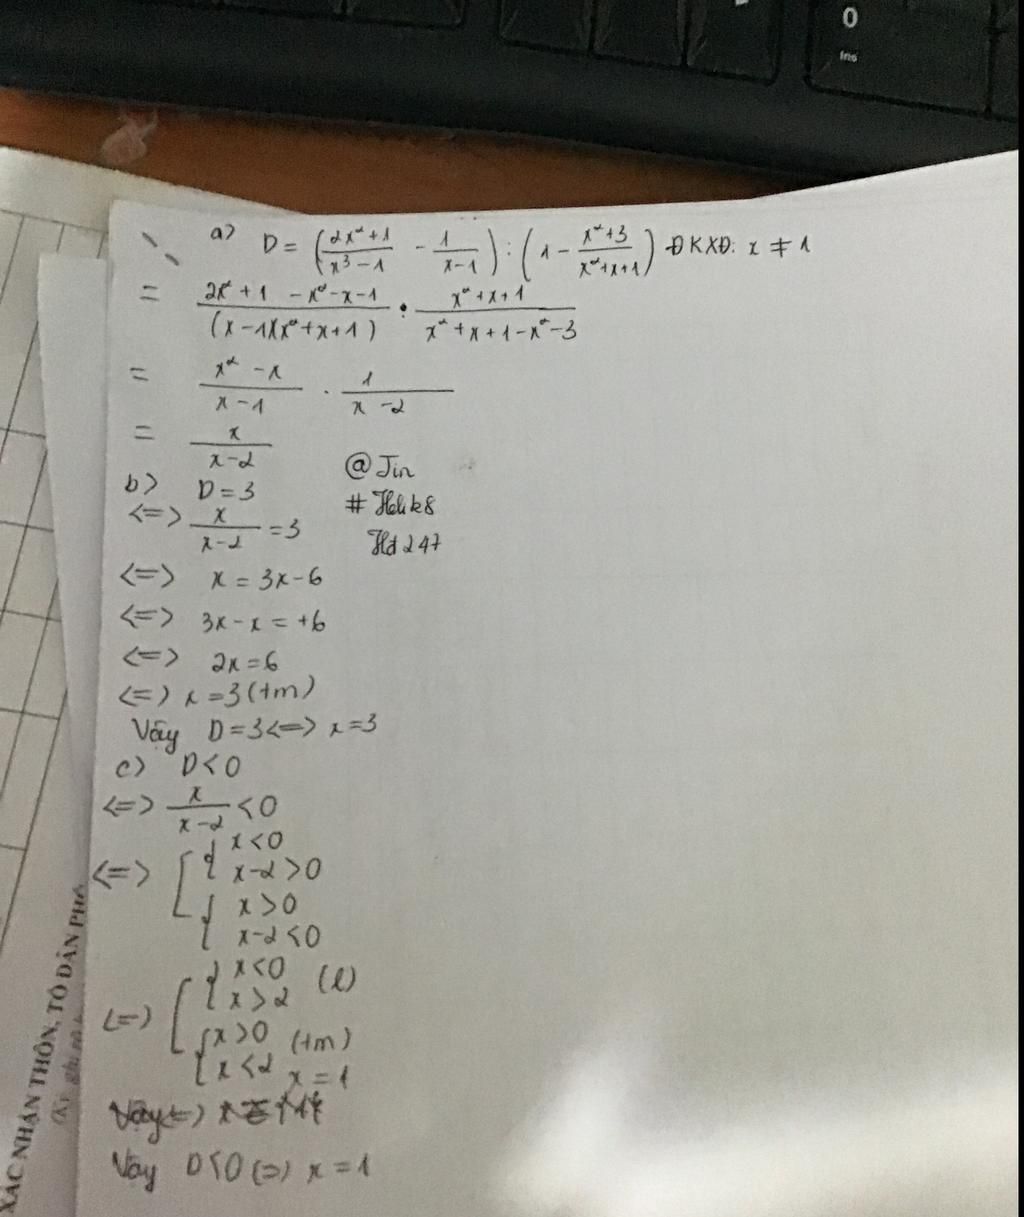 0
Ins
a> D = (2x²+1/x³-1 - 1/x-1) : (1 - x²+3/x²+x+1) ĐKXĐ: x ≠ 1
= 2x²+1 -x²-x-1/(x-1)(x²+x+1) . x²+x+1/x²+x+1-x²-3
= x²-x/x-1 . 1/x-2
= x/x-2
@Jin
b> D=3
<=> x/x-2 =3
<=> x = 3x-6
<=> 3x-x = +6
<=> 2x=6
<=> x=3(tm)
Vậy D=3<=> x=3
c) D<0
<=> x/x-2 <0
<=> [ { x<0
x-2>0
{ x>0
x-2<0
<=> [ { x<0
x>2 (l)
{ x>0
x<2 (tm)
x=1
Vậy D<0 <=> x=1
XÁC NHẬN THÔN, TỔ DÂN PHỐ